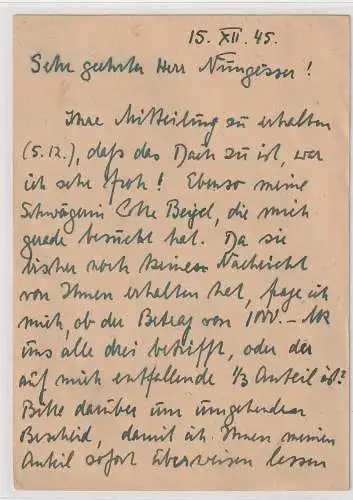 15. XII. 45.
Sehr geehrter Herr Nungesser!
Ihre Mitteilung zu erhalten
(5.12.), daß das Dach zu ist, war
ich sehr froh! Ebenso meine
Schwägerin Beigel, die mich
gerade besucht hat. Da sie
bisher noch keine Nachricht
von Ihnen erhalten hat, frage ich
mich, ob der Betrag von 1000.- MK
uns alle drei betrifft, oder der
auf mich entfallende 1/3 Anteil ist?
Bitte darüber um umgehenden
Bescheid, damit ich Ihnen meinen
Anteil sofort überweisen lassen